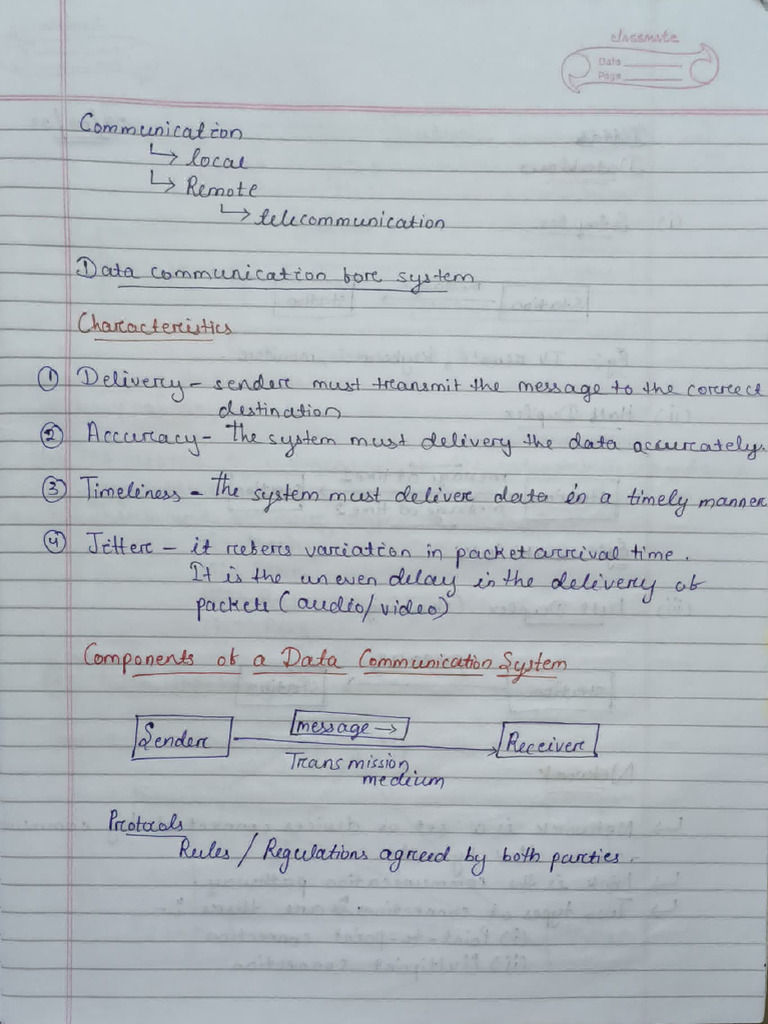 classmate
Date
Page
Communication
↳ local
↳ Remote
↳ telecommunication
Data communication fore system
Characteristics
① Delivery - sender must transmit the message to the correct
destination
② Accuracy - The system must delivery the data accurately.
③ Timeliness - The system must deliver data in a timely manner
④ Jitter - it refers variation in packet arrival time.
It is the uneven delay in the delivery of
packets (audio/video)
Components of a Data Communication System
Sender message → Receiver
Transmission
medium
Protocols
Rules / Regulations agreed by both parties.